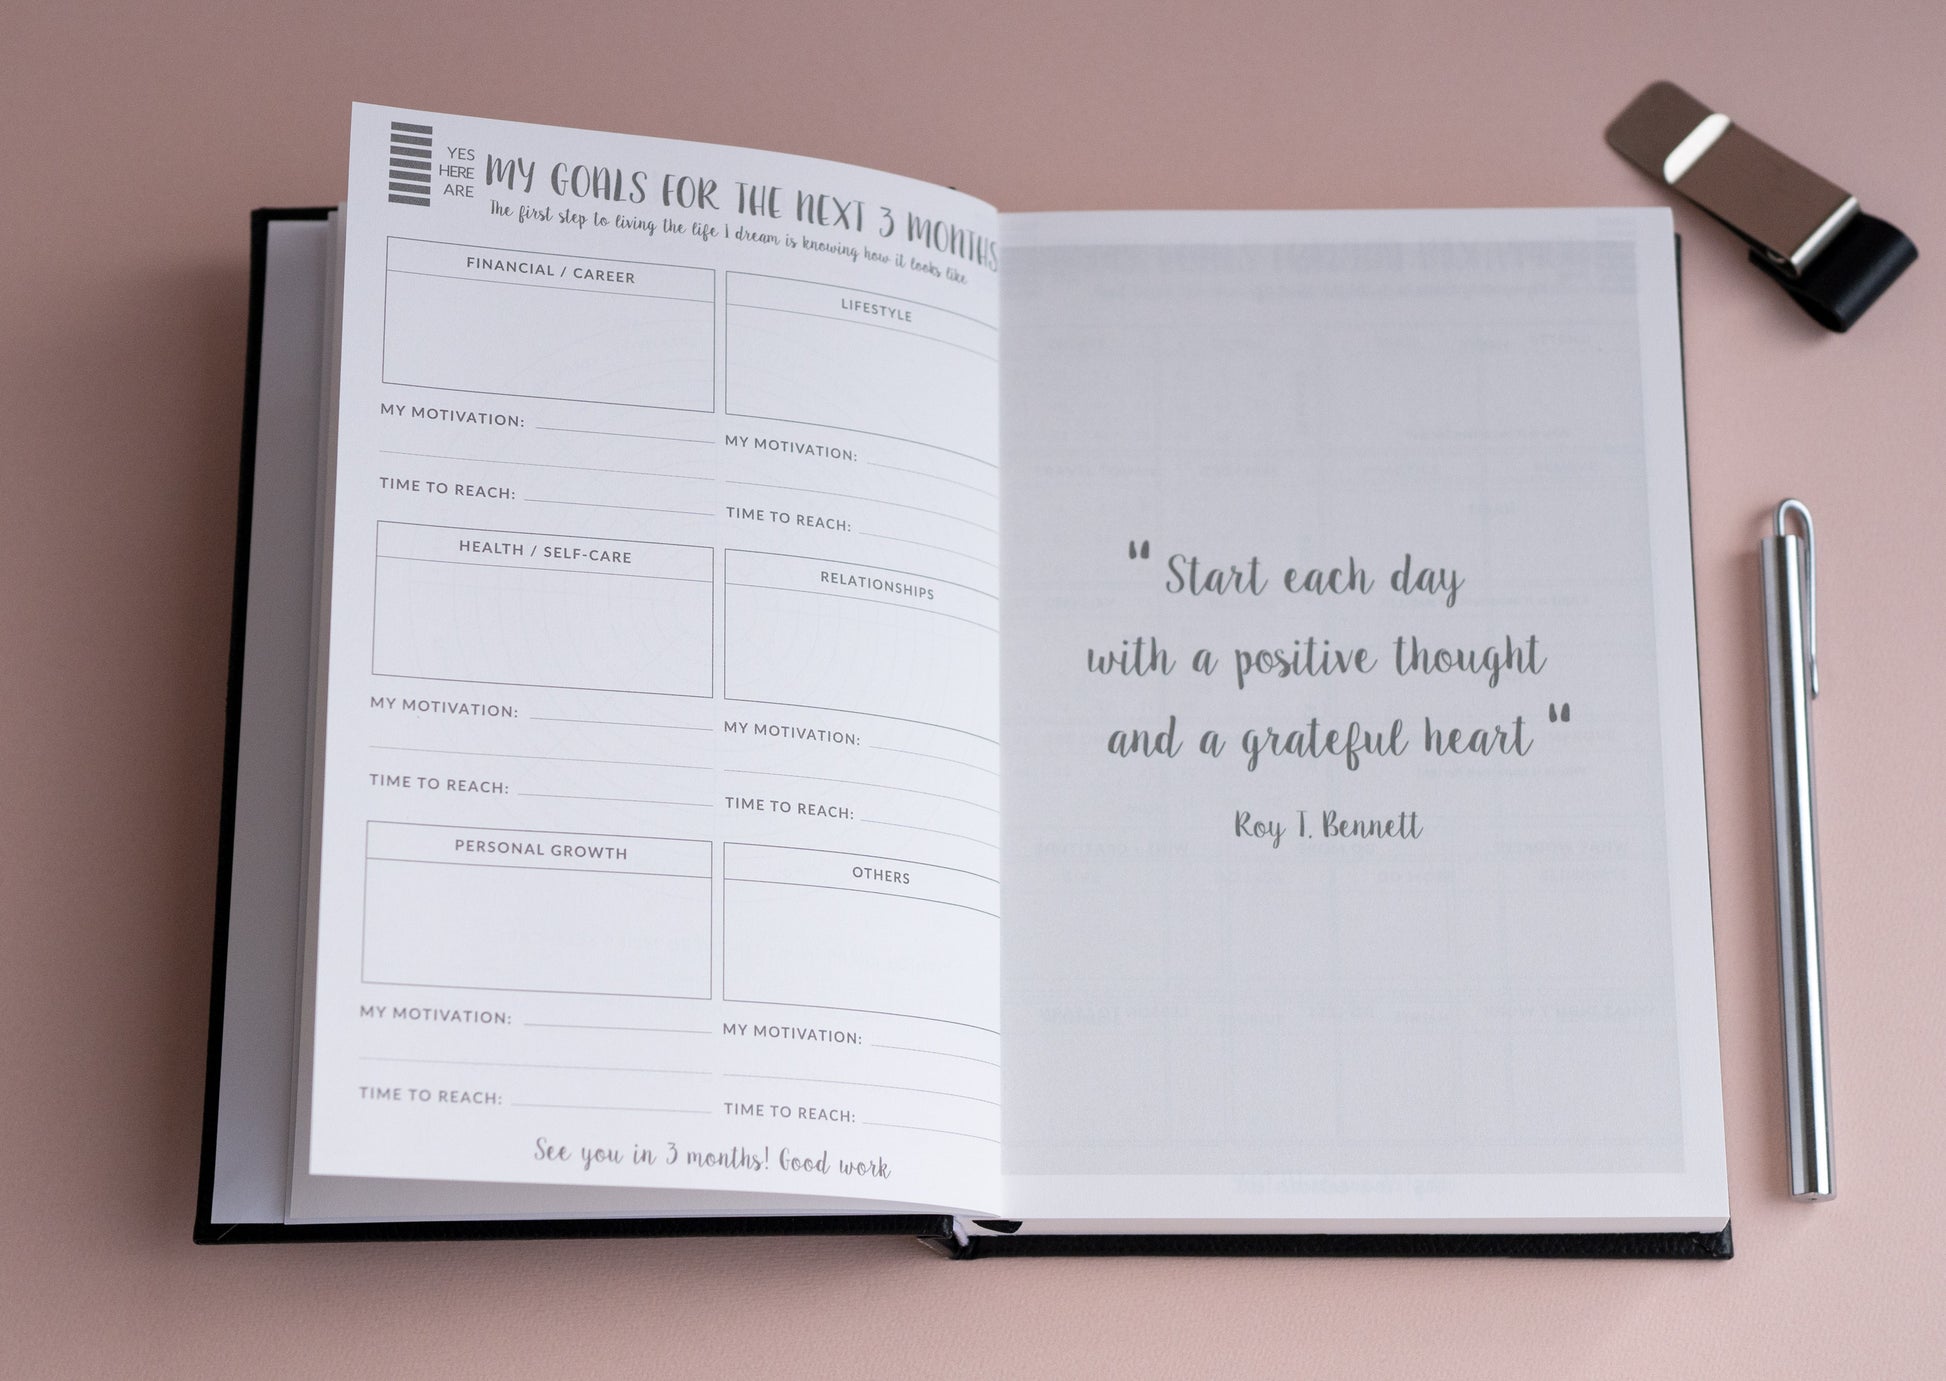 YES
HERE
ARE
MY GOALS FOR THE NEXT 3 MONTHS
The first step to living the life I dream is knowing how it looks like
FINANCIAL / CAREER
MY MOTIVATION:
TIME TO REACH:
LIFESTYLE
MY MOTIVATION:
TIME TO REACH:
HEALTH / SELF-CARE
MY MOTIVATION:
TIME TO REACH:
RELATIONSHIPS
MY MOTIVATION:
TIME TO REACH:
PERSONAL GROWTH
MY MOTIVATION:
TIME TO REACH:
OTHERS
MY MOTIVATION:
TIME TO REACH:
See you in 3 months! Good work
"Start each day
with a positive thought
and a grateful heart"
Roy T. Bennett